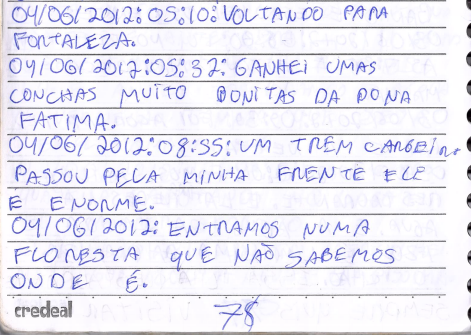 04/06/2012:05:10:VOLTANDO PARA
FORTALEZA.
04/06/2012:05:32:GANHEI UMAS
CONCHAS MUITO BONITAS DA DONA
FATIMA.
04/06/2012:08:55:UM TREM CARGEIRO
PASSOU PELA MINHA FRENTE ELE
É ENORME.
04/06/2012:ENTRAMOS NUMA
FLORESTA QUE NÃO SABEMOS
ONDE É.
credeal
78